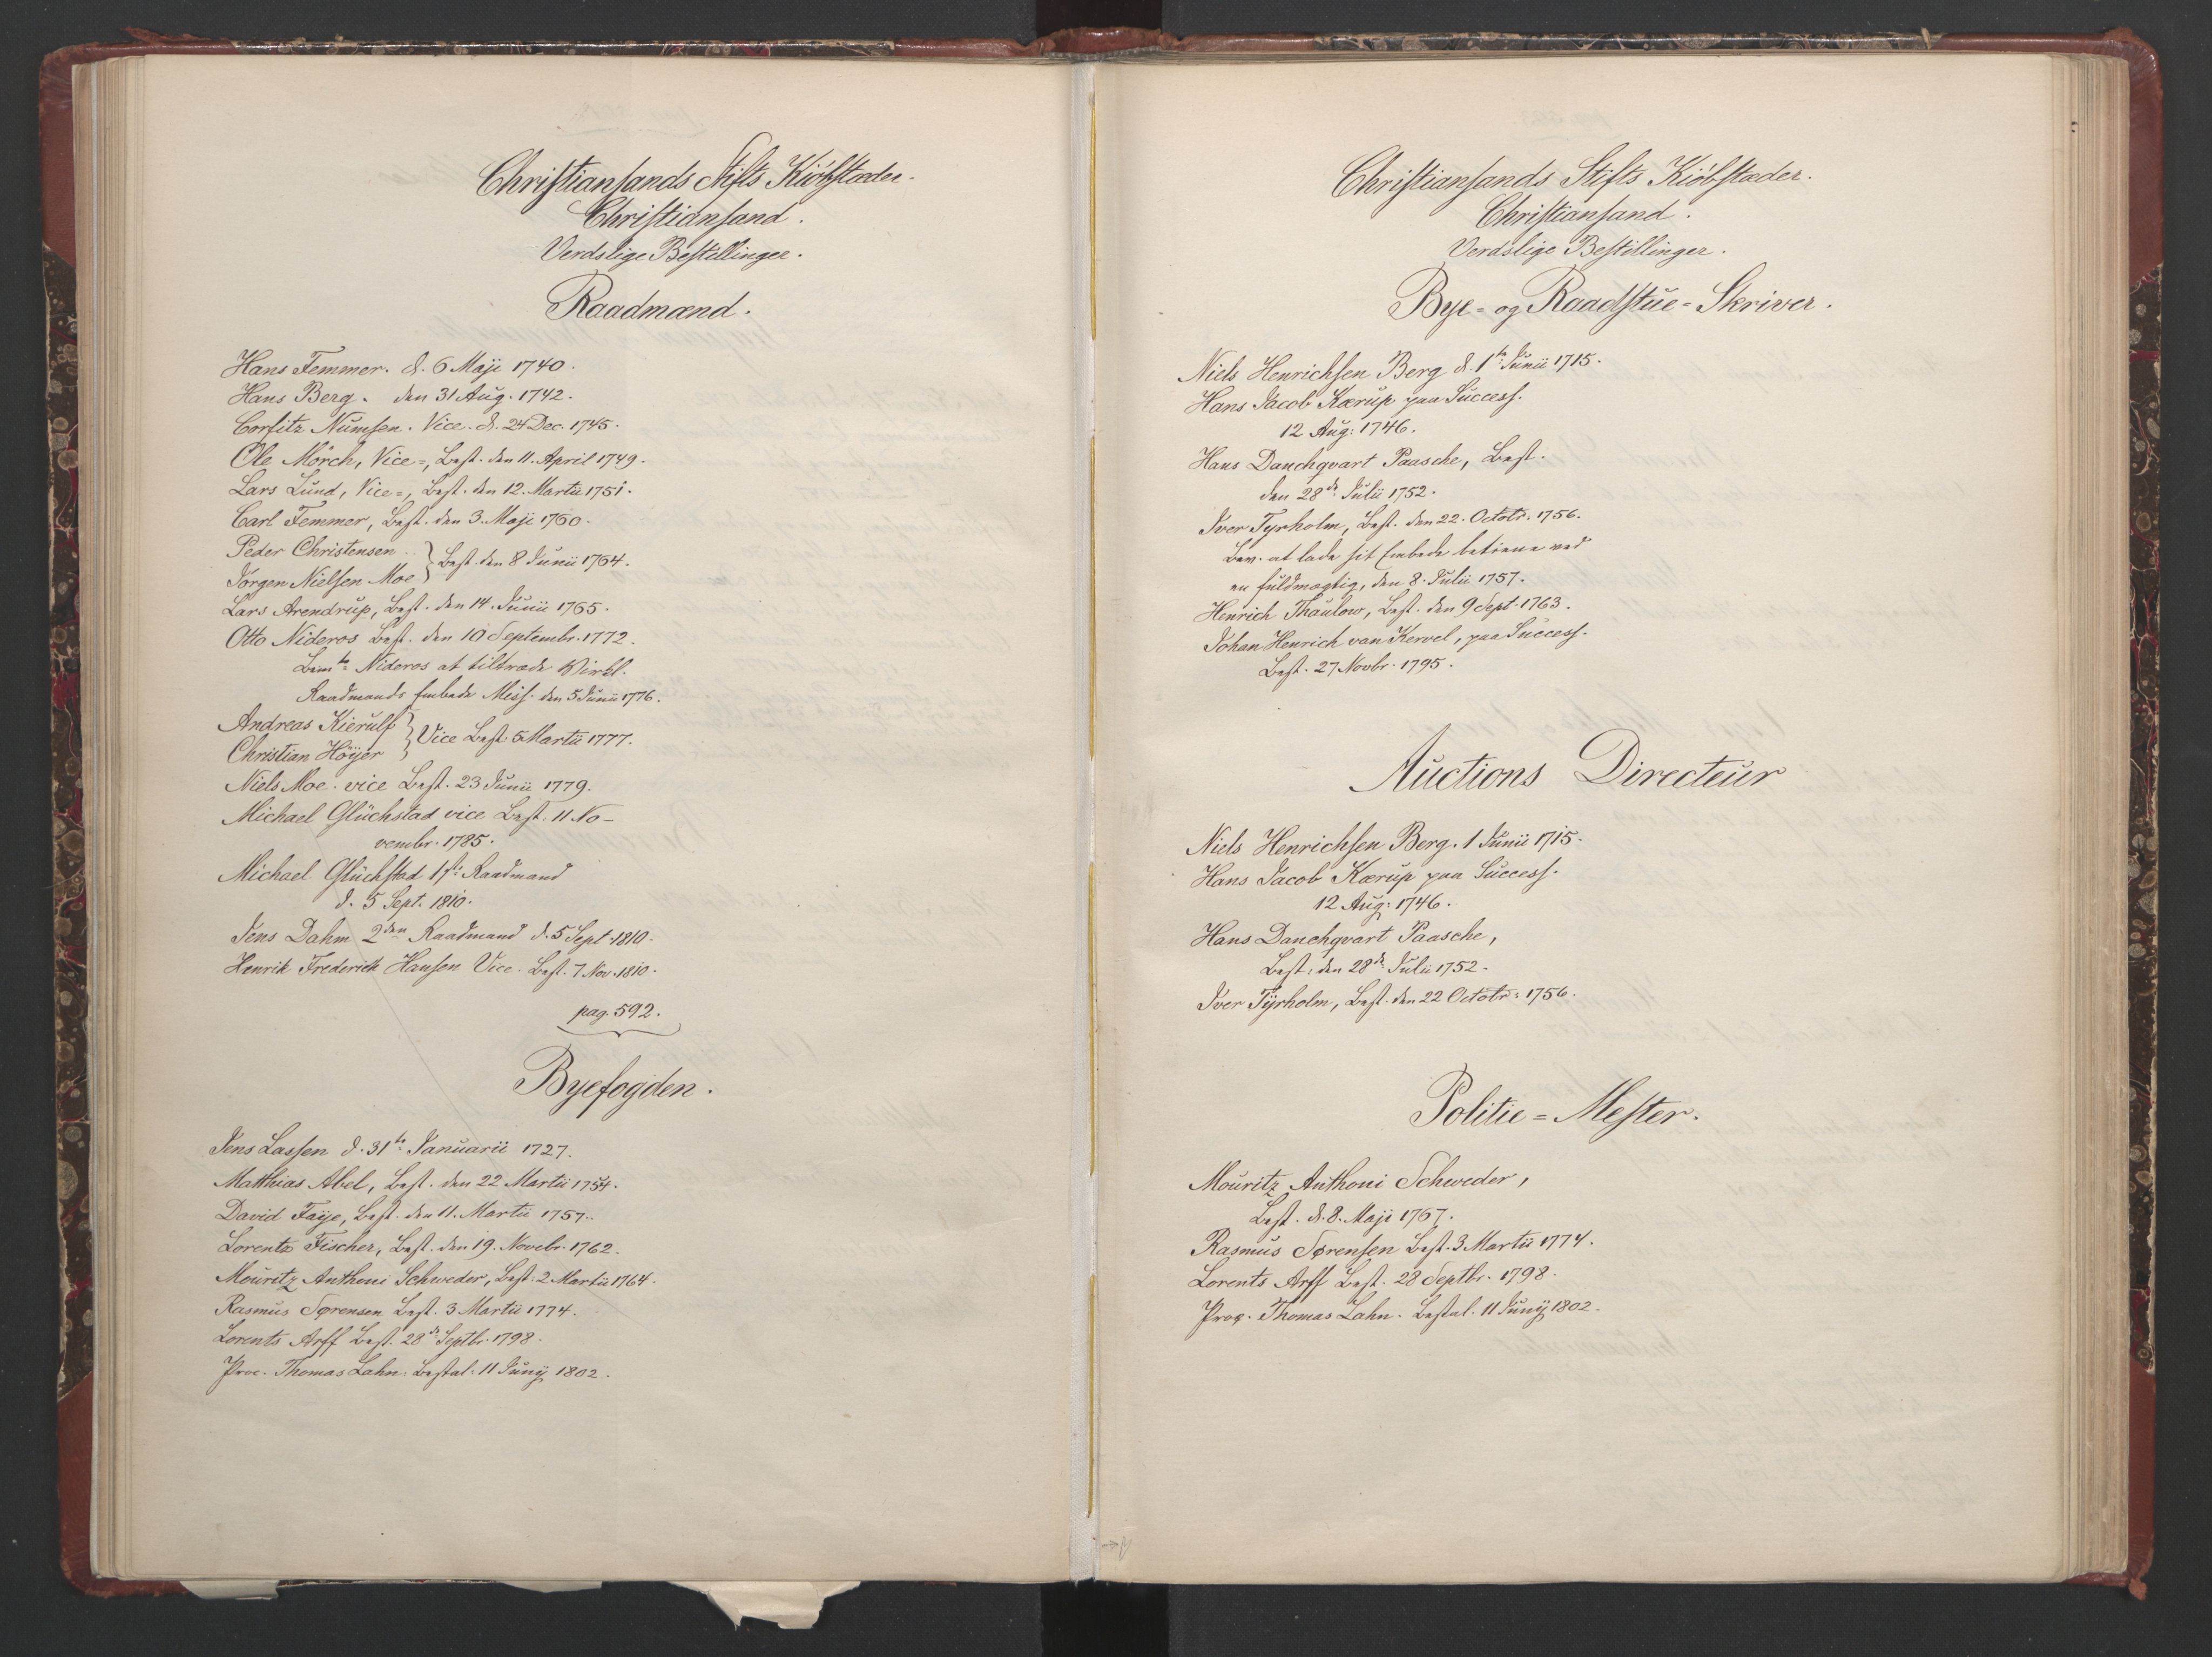 Christiansands Stifts Kiöbstæder.
Christiansand.
Verdslige Bestillinger.
Raadmænd.
Hans Femmer. d. 6 Maji 1740.
Hans Berg. den 31 Aug. 1742.
Corfitz Numsen. Vice. d. 24 Dec. 1745.
Ole Mörch, Vice=, Best. den 11. April 1749.
Lars Lund, Vice=, Best. den 12. Martii 1751.
Carl Femmer, Best. den 3. Maji 1760.
Peder Christensen
Jörgen Nielsen Moe } Best. den 8 Junii 1764.
Lars Arendrup, Best. den 14. Junii 1765.
Otto Nideros Best. den 10 Septembr. 1772.
Bemte Nideros at tiltræde Wirkl.
Raadmands Embede Miss. den 5 Junii 1776.
Andreas Kierulf
Christian Höyer } Vice Best. 5 Martii 1777.
Niels Moe. vice Best. 23 Junii 1779.
Michael Glückstad vice Best. 11 No-
vembr. 1785.
Michael Glückstad 1ste Raadmand
d. 5 Sept. 1810.
Jens Dahm 2den Raadmand d. 5 Sept 1810.
Henrik Frederich Hansen Vice. Best. 7 Nov. 1810.
pag. 592.
Byefogden.
Jens Lassen d. 31te Januarii 1727.
Matthias Abel, Best. den 22 Martii 1754.
David Faye, Best. den 11. Martii 1757.
Lorentz Fischer, Best. den 19. Novebr. 1762.
Mouritz Anthoni Schweder, Best. 2 Martii 1764.
Rasmus Sørensen Best. 3 Martii 1774.
Lorents Arff Best. 28de Septbr. 1798.
Proc. Thomas Lahn. Bestal. 11 Junij 1802.
Christiansands Stifts Kiöbstæder.
Christiansand.
Verdslige Bestillinger.
Bye= og Raadstue=Skriver.
Niels Henrichsen Berg d. 1te Junii 1715.
Hans Jacob Kærup paa Success.
12 Aug: 1746.
Hans Danchqvart Paasche, Best.
den 28de Julii 1752.
Iver Tyrholm, Best. den 22. Octobr. 1756.
Bev. at lade sit Embede betiene ved
en fuldmægtig, den 8. Julii 1757.
Henrich Thaulow, Best. den 9 Sept. 1763.
Johan Henrich van Kervel, paa Success.
Best. 27 Novbr. 1795.
Auctions Directeur
Niels Henrichsen Berg. 1 Junii 1715.
Hans Jacob Kærup paa Success.
12 Aug: 1746.
Hans Danchqvart Paasche,
Best: den 28de Julii 1752.
Iver Tyrholm, Best. den 22 Octobr: 1756.
Politie=Mester.
Mouritz Anthoni Schweder,
Best. d. 8. Maji 1767.
Rasmus Sørensen Best. 3 Martii 1774.
Lorents Arff Best. 28 Septbr. 1798.
Proc. Thomas Lahn. Bestal. 11 Junij 1802.